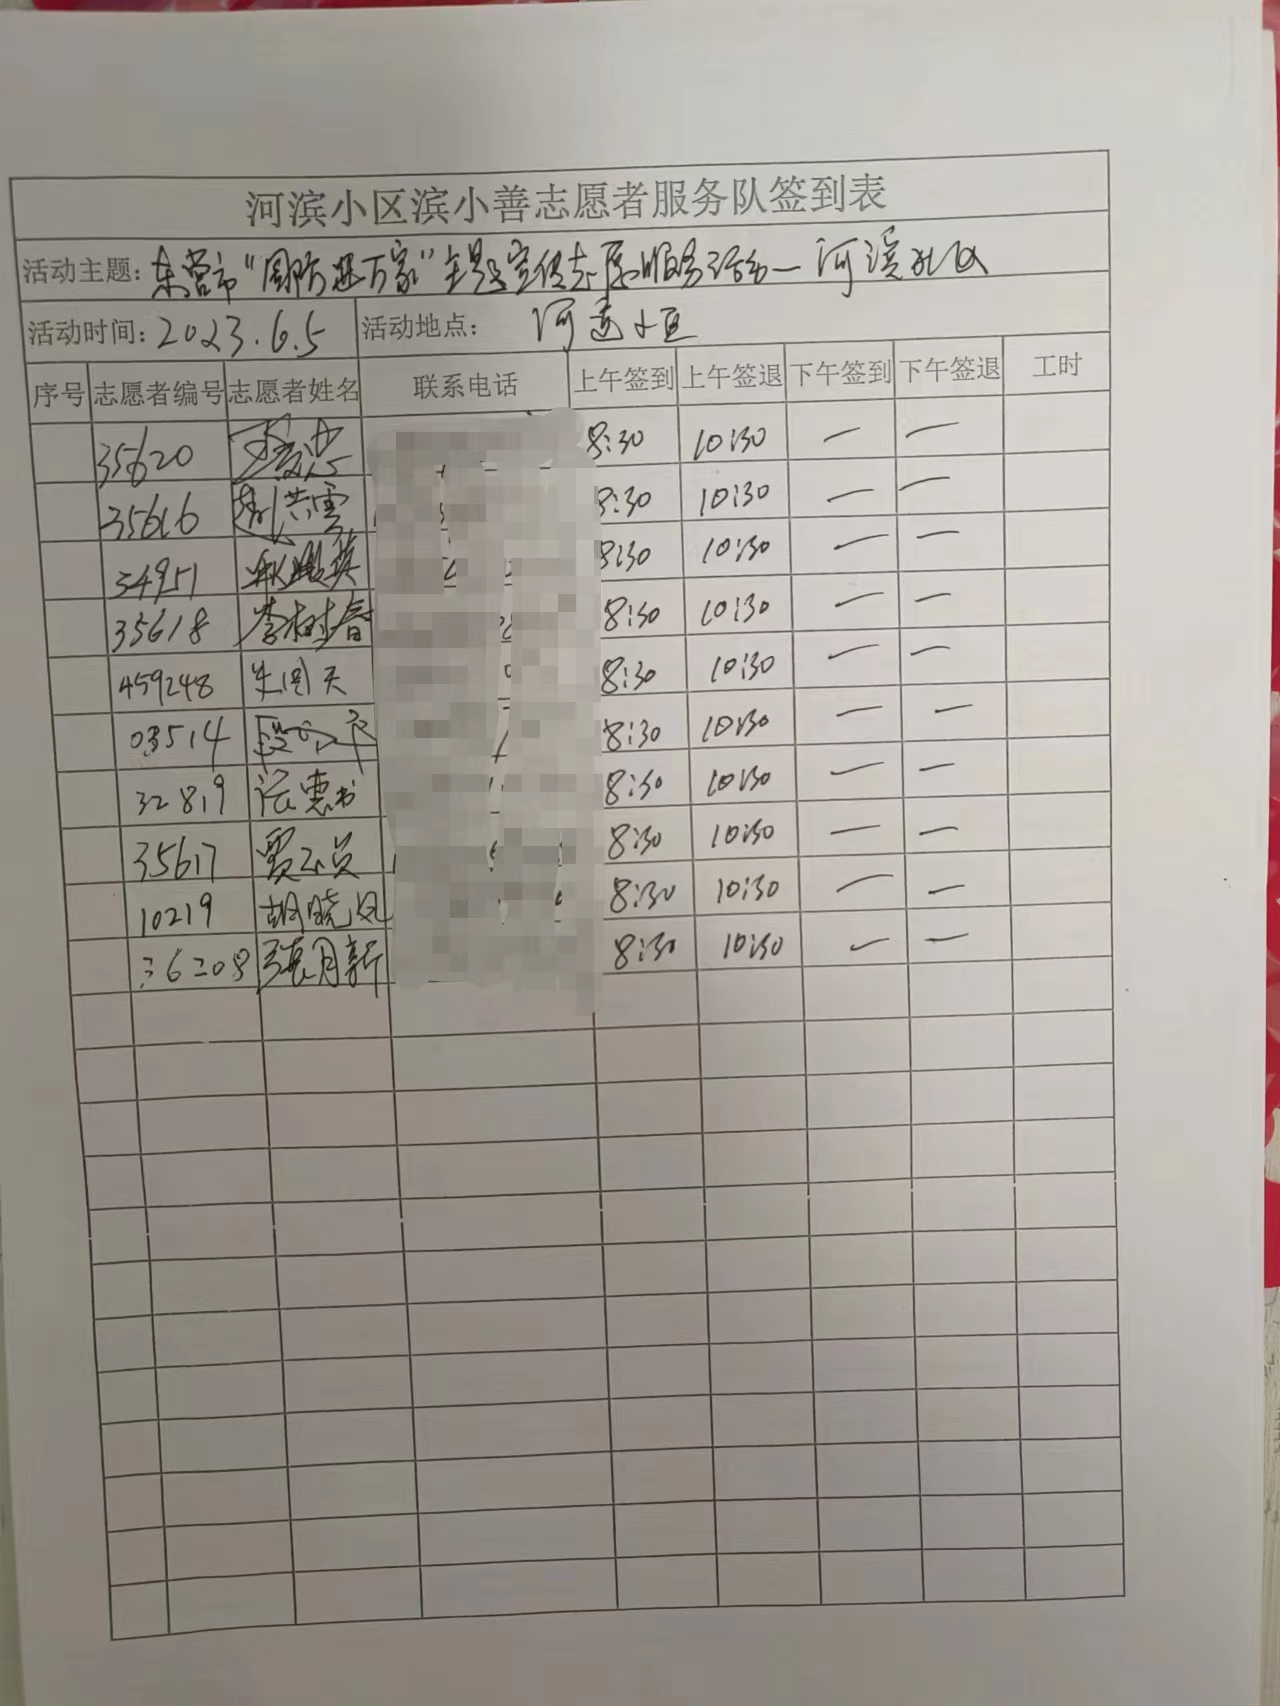 河滨小区滨小善志愿者服务队签到表
活动主题：东营市“国防进万家”主题宣传志愿服务活动—河滨社区
活动时间：2023.6.5 活动地点：河滨小区
序号 志愿者编号 志愿者姓名 联系电话 上午签到 上午签退 下午签到 下午签退 工时
35620 8:30 10:30 — —
35616 赵洪云 8:30 10:30 — —
34951 8:30 10:30 — —
35618 李树春 8:30 10:30 — —
459248 朱国天 8:30 10:30 — —
03514 8:30 10:30 — —
32819 张惠书 8:30 10:30 — —
35617 贾玉贞 8:30 10:30 — —
10219 胡晓凤 8:30 10:30 — —
36208 張月新 8:30 10:30 — —